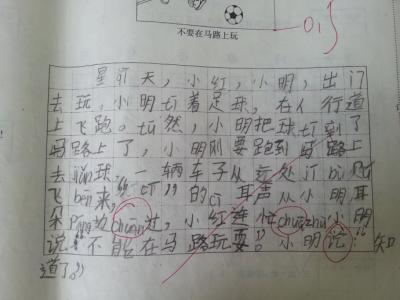 不要在马路上玩
星期天，小红，小明，出门
去玩，小明ti着足球，在人行道
上飞跑。tū然，小明把球ti到了
马路上了，小明刚要跑到马路上
去jiǎn球，一辆车子从远处
飞bēn来，“ 的 声从小明耳
朵 边chuān过，小红连忙chuǎ zhù小明
说“不能在马路玩耍”。小明说：“知
道了。”